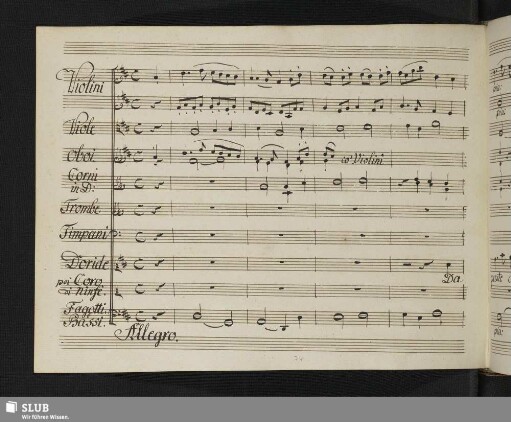 Violini
Viole
Oboi
co' Violini
Corni
in D:
Trombe
Timpani
Doride
Da
poi Coro
di ninfe.
Fagotti.
Bassi.
Allegro.
SLUB
Wir führen Wissen.